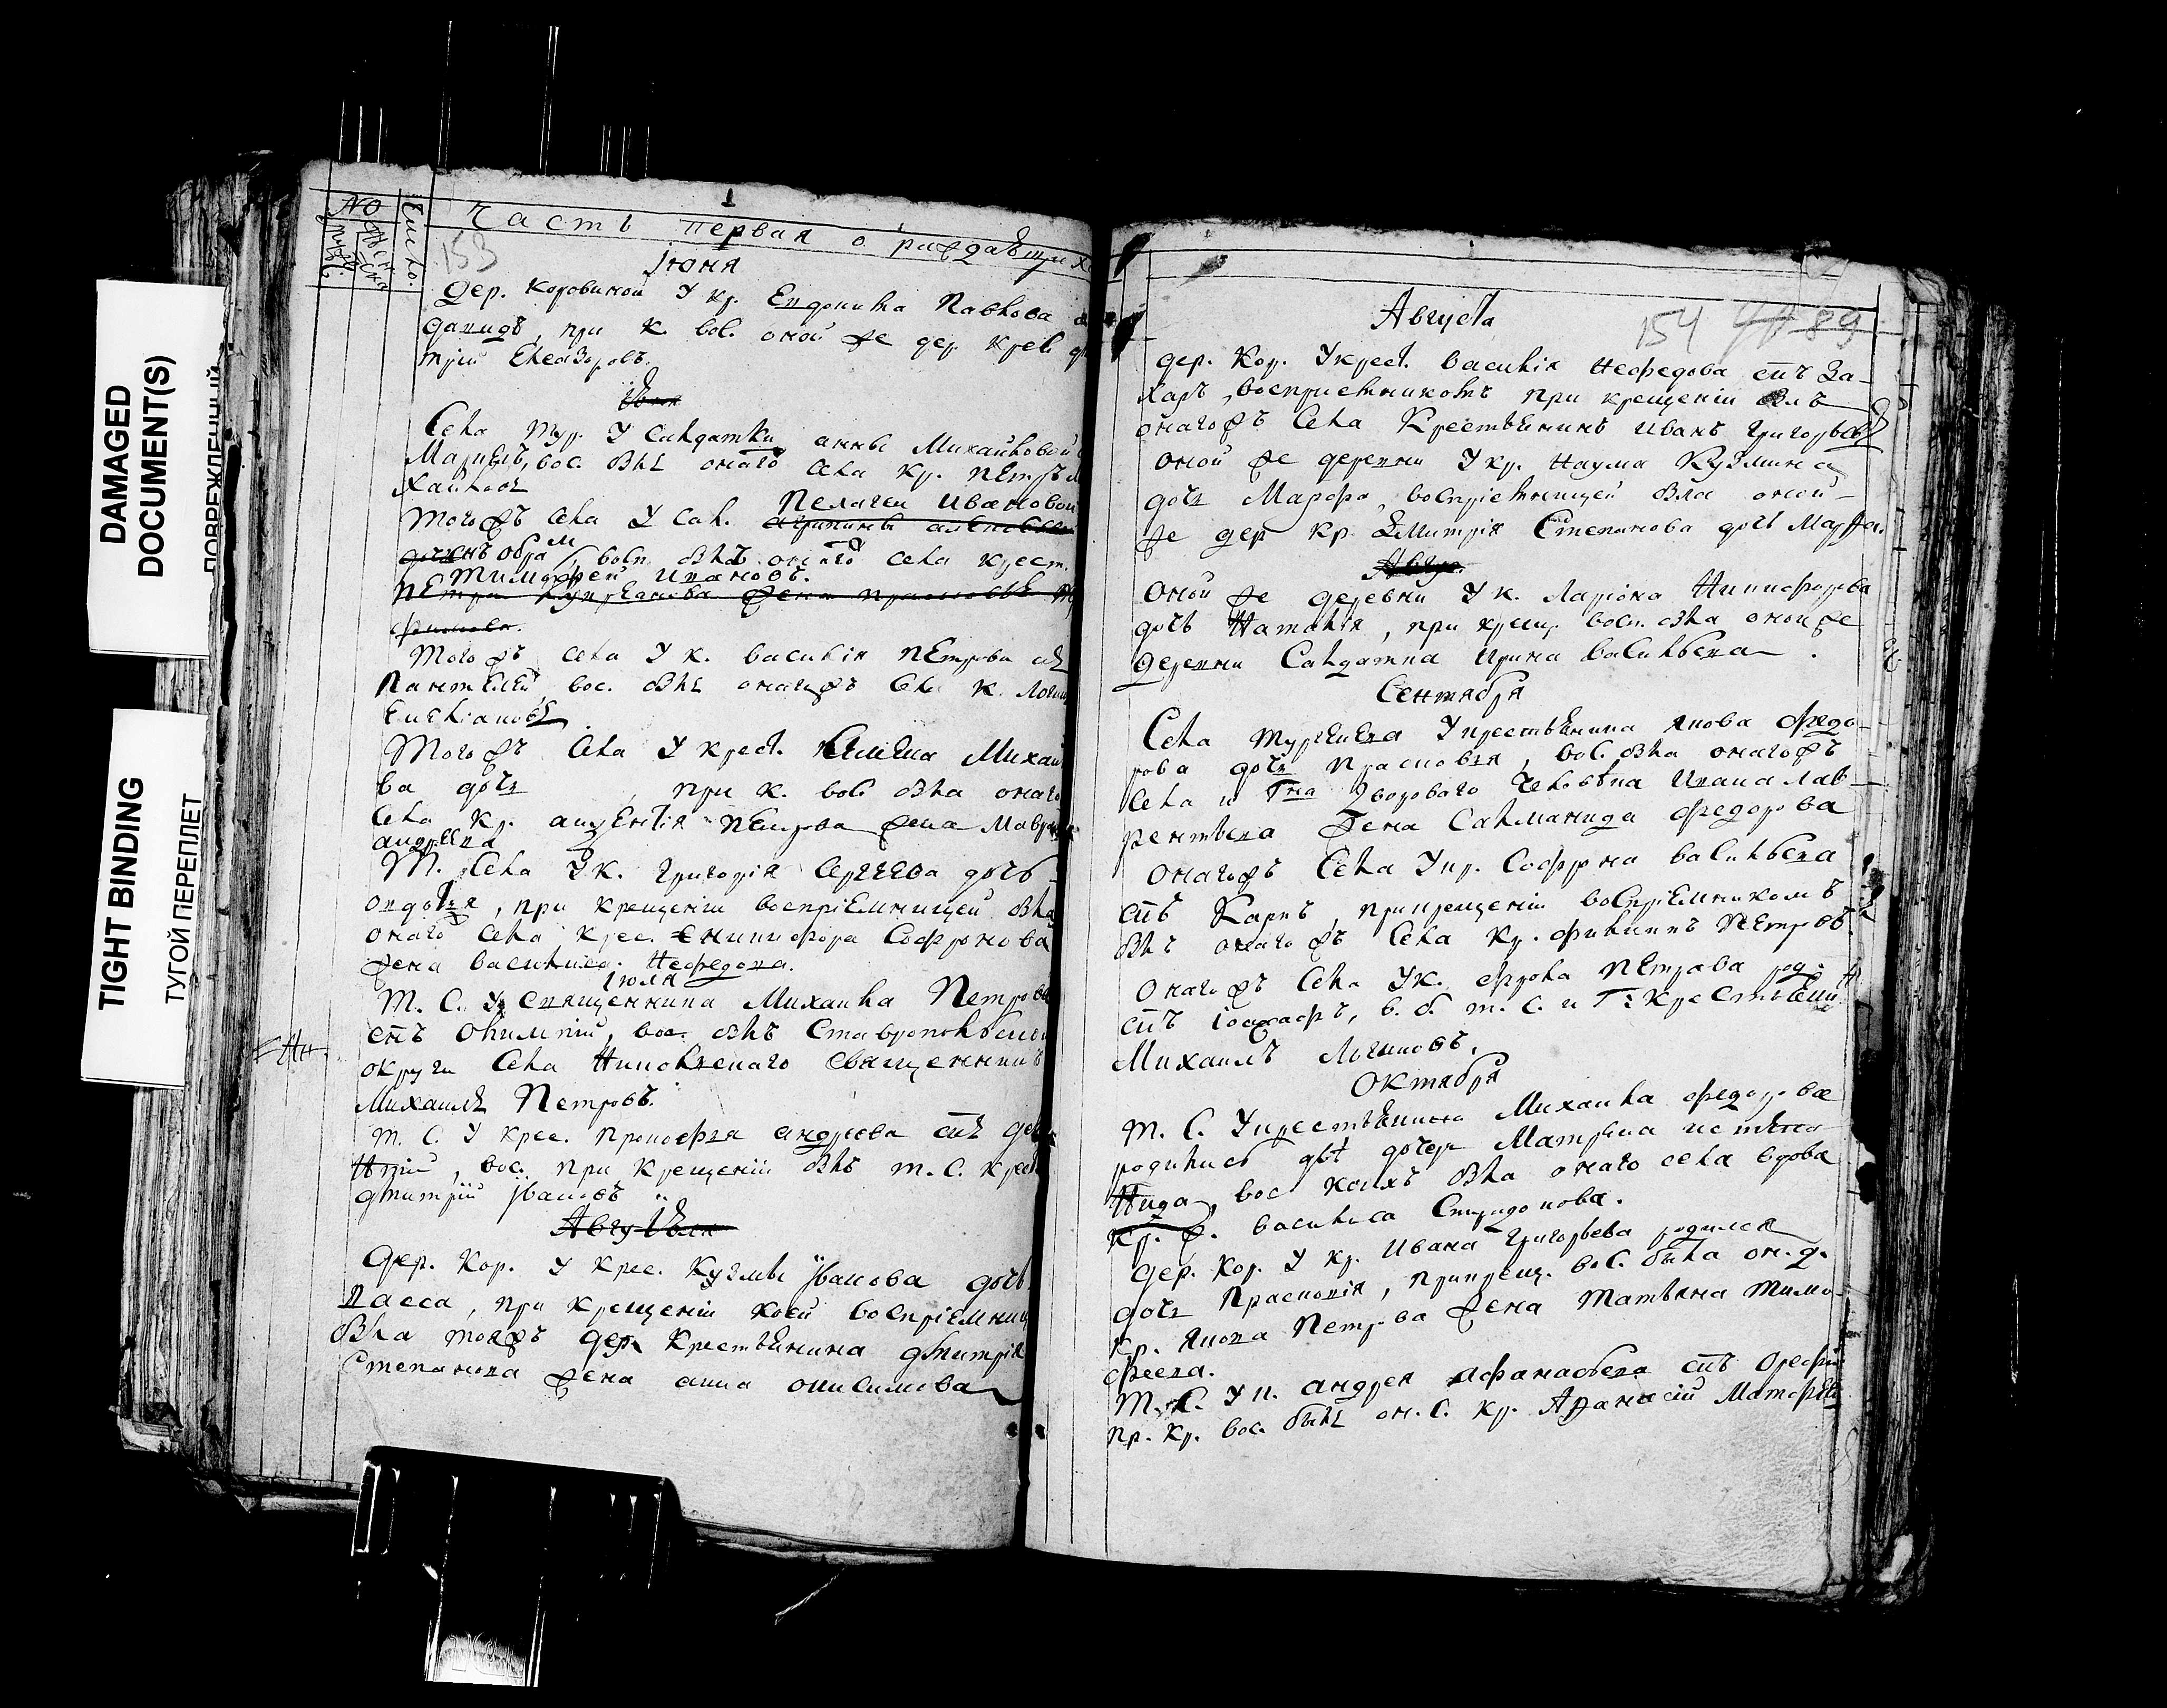 DAMAGED
DOCUMENT(S)
TIGHT BINDING
ТУГОЙ ПЕРЕПЛЕТ
№
Число.
153
Часть первая о раждающихс
Іюня
Дер. Коровиной У кр. Евдокима Павлова
Давидъ, при к. вос. оной же дер. крес.
трій Елеазоровъ.
Села Тур. У Салдатки анны Михайловой
вос. былъ онаго села кр. Петръ
Тогожъ села У Сал. Пелагеи Ивановой
восп. былъ онаго села крест.
Тимофей Ивановъ.
Тогожъ села У к. василія Петрова
Пантелей, вос. былъ онагожъ села к.
Тогожъ села У крест. Михай
ва дочь , при к. вос. была онаго
села кр. Петрова жена Мавра
андреева
Т. села У к. григорія Сергеева дочь
овдотья, при крещеніи воспріемницей была
онаго села крес. Софронова
жена василиса Нефедова.
Іюля
Т. С. У Священника Михаила Петрова
сынъ Олимпій, вос. былъ Ставропольской
округи села Священникъ
Михаилъ Петровъ.
Т. С. У крес. Прокофья андреева сынъ
вос. при крещеніи былъ т. С. крес
дмитрій Ивановъ
Дер. Кор. У крес. Кузмы Иванова дочь
васса, при крещеніи коей воспріемниц
была тояжъ дер. крестьянина дмитрія
Степанова жена анна онисимова
154 89
Августа
дер. Кор. У крест. василія Нефедова сынъ За-
харъ, воспріемникомъ при крещеніи былъ
онагожъ села Крестьянинъ Иванъ Григорьевъ
оной же деревни У кр. Наума Кузмина
дочь Марфа, воспріемницей была оной
же дер кр. Дмитрія Степанова дочь Марфа.
оной же деревни У к. Ларіона Никифорова
дочь Наталія, при крещ. восп. была оной же
деревни Салдатка Ирина Васильева.
Сентября
Села Тургенева У крестьянина якова федо-
рова дочь Прасковья, вос. была онагожъ
села и Гна Двороваго человека Ивана Лав-
рентьева жена Саламанида федорова
Онагожъ села У кр. Софрона Васильева
сынъ Карпъ, при крещеніи воспріемникомъ
былъ онагожъ села кр. филиппъ Петровъ.
Онагожъ села У к. фрола Петрова род.
сынъ Іоасафъ, в. б. т. С. и Г: Крестьянин
Михаилъ Логиновъ.
Октября
Т. С. У крестьянина Михаила федорова
родились две дочери Матрена
вос коихъ была онаго села вдова
кр. ж. василиса Спиридонова.
Дер. Кор. У кр. Ивана Григорьева родилась
дочь Прасковія, при крещ. вос. была он. д.
кр. якова Петрова жена Татьяна Тимо-
феева.
Т. С. У к. андрея Афанасьева сынъ
пр. кр. вос. былъ он. С. кр. Афанасій